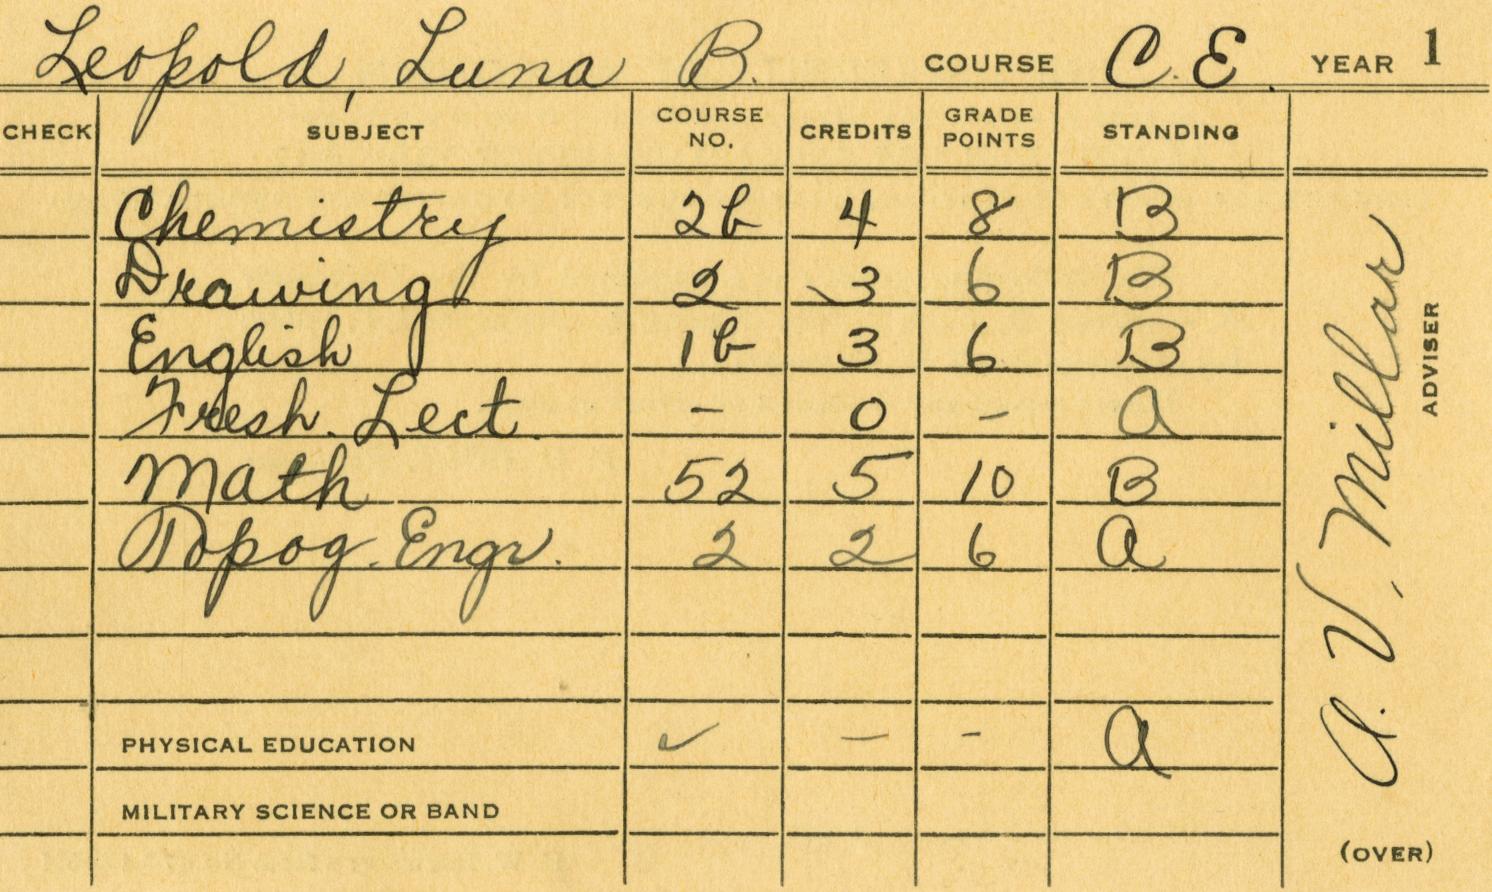 Leopold, Luna B. COURSE C.E. YEAR 1
CHECK SUBJECT COURSE NO. CREDITS GRADE POINTS STANDING
Chemistry 2b 4 8 B
Drawing 2 3 6 B
English 1b 3 6 B
Fresh. Lect. - 0 - A
Math 52 5 10 B
Topog. Engr. 2 2 6 A
PHYSICAL EDUCATION ✓ - - A
MILITARY SCIENCE OR BAND
A. V. Millar
ADVISER
(OVER)